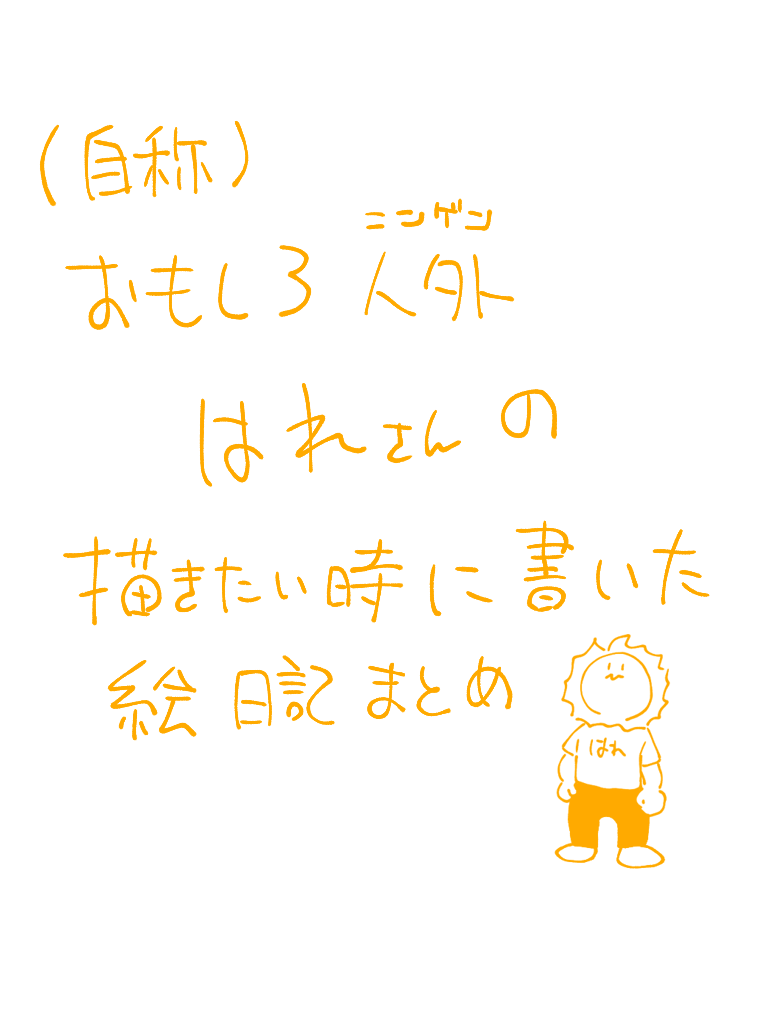 (自称)
ニンゲン
おもしろ 人外
はれさんの
描きたい時に書いた
絵日記まとめ
はれ